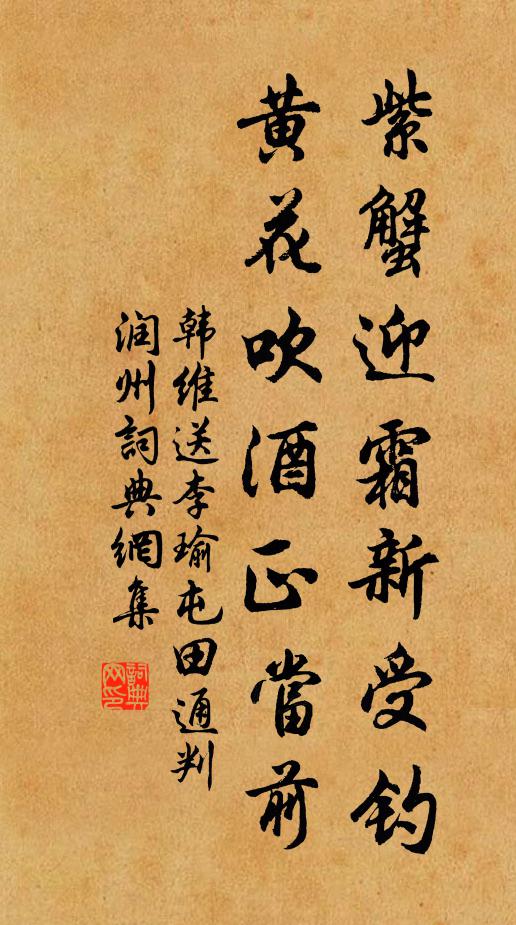 紫蟹迎霜新受钓
黄花吹酒正當前
韩维送李瑜屯田通判
润州詞典網集
詞典网印